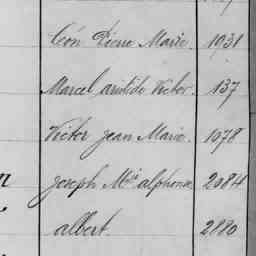 Léon Pierre Marie. 1931
Marcel aristide Victor. 137
Victor Jean Marie. 1078
Joseph Mie alphonse 2084
albert. 2880